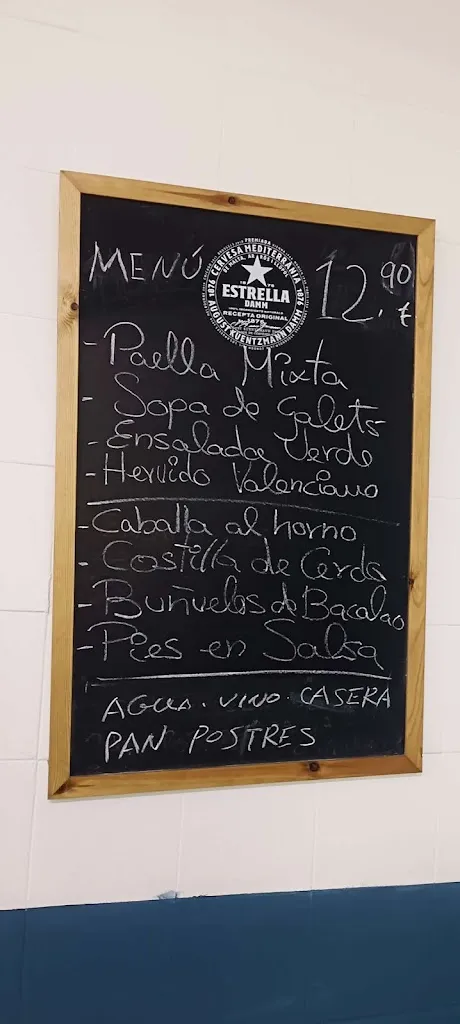 MENÚ
12.90 €
PREMIADA
CERVESA MEDITERRÀNIA
DE MALTA, ARRÒS I LLÚPOL
1876
1876
ESTRELLA
DAMM
RECEPTA ORIGINAL
1876
AUGUST KUENTZMANN DAMM
- Paella Mixta
- Sopa de Galets
- Ensalada Verde
- Hervido Valenciano
- Caballa al horno
- Costilla de Cerdo
- Buñuelos de Bacalao
- Pies en Salsa
AGUA. VINO. CASERA
PAN POSTRES